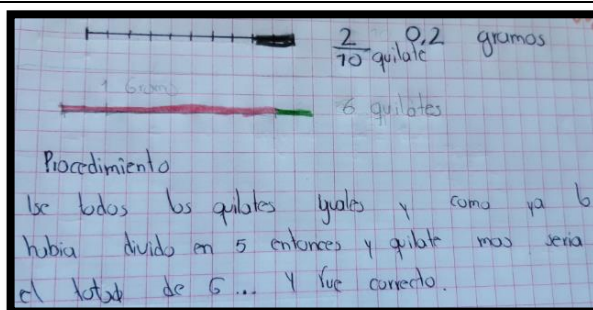 2/10 quilate 0,2 gramos
1 Gramo
6 quilates
Procedimiento
Ise todos los quilates yguales y como ya lo
habia divido en 5 entonces y quilate mas seria
el total de 6... y fue correcto.